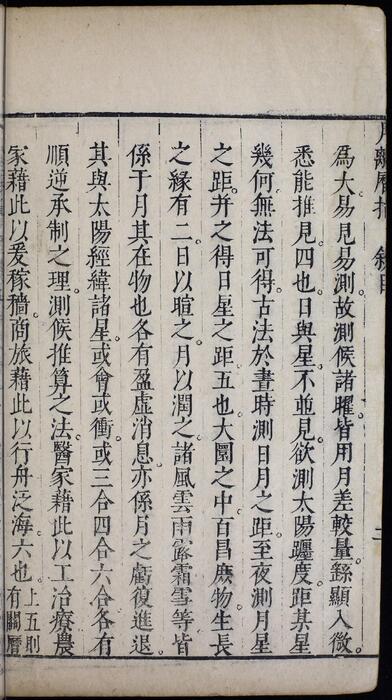 月離曆指 敘目
為大易見易測故測候諸曜皆用月差較量繇顯入微
悉能推見四也日與星不並見欲測太陽躔度距某星
幾何無法可得古法於晝時測日月之距至夜測月星
之距并之得日星之距五也大圜之中百昌庶物生長
之緣有二日以暄之月以潤之諸風雲雨露霜雪等皆
係于月其在物也各有盈虛消息亦係月之虧復進退
其與太陽經緯諸星或會或衝或三合四合六合各有
順逆承制之理測候推算之法醫家藉此以工治療農
家藉此以爰稼穡商旅藉此以行舟泛海六也上五則
有關曆